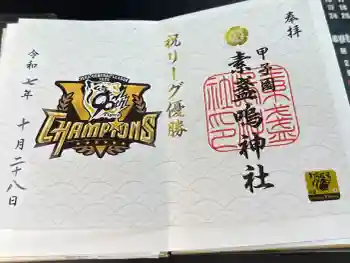 奉拝
甲子園
素盞嗚神社
祝リーグ優勝
CHAMPIONS
令和七年 十月二十八日